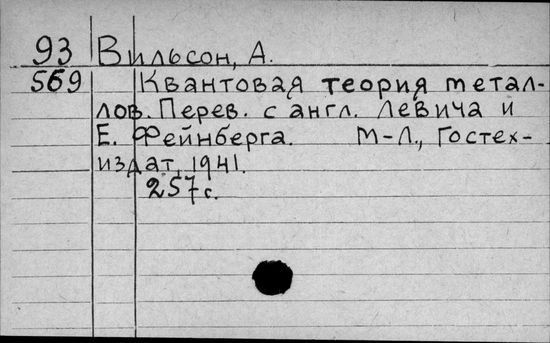 93 Вильсон, А.
569 Квантовая теория метал-
лов. Перев. с англ. Левича и
Е. Фейнберга. М-Л., Гостех-
издат, 1941.
257 с.